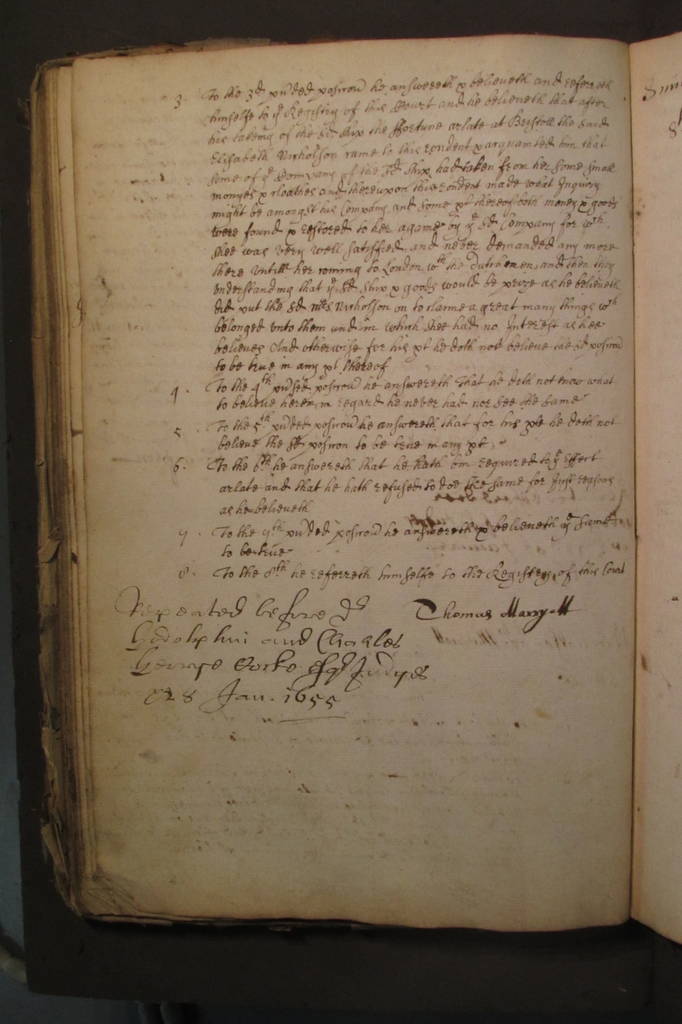 3. To the 3d pr̃nded posic̃on he answereth & believeth and referreth
himselfe to ye Registry of this Court and he believeth that after
his takeing of the sd ship the ffortune arlate at Bristoll the said
Elizabeth Nicholson came to this rendent & acquainted him that
some of ye Company of the sd ship had taken from her some small
monyes & cloathes and thereupon this rendent made what Inquiry
might be amongst his Company and some pt thereof both money & goods
were found & restored to her againe by ye sd Company for wch
shee was very well satisfied, and never demanded any more
there untill her coming to London wth the Dutchmen, and then they
understanding that ye sd ship & goods would be prize as he believeth
did put the sd Mrs Nicholson on to claime a great many things wch
belonged unto them and in which shee had no Interest as hee
believes And otherwise for his pt he doth not believe the sd posic̃on
to be true in any pt thereof
4. To the 4th pr̃nded posic̃on he answereth that he doth not know what
to believe herein in regard he never had nor see the same
5. To the 5th pr̃nded posic̃on he answereth that for his pte he doth not
believe the sd posic̃on to be true in any pt.
6. To the 6th he answereth that he hath bin required to ye Effect
arlate and that he hath refused to doe the same for Just reasons
as he believeth
7. To the 7th pr̃nded posic̃on he answereth & believeth ye same
to be true
8. To the 8th he referreth himselfe to the Registry of this Court
Repeated before Dr Thomas Marryott
Godolphin and Charles
George Cocke Esqr Judges
28 Jan. 1655